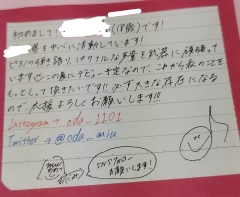 初めまして! (18歳)です!
県を中心に活動しています!
ピアノの弾き語り、パワフルな声量を武器に頑張って
います この夏にデビュー予定なので、これから私のことを
もっとして頂きたいです!! 必ず大きな存在になる
ので、応援よろしくお願いします!!!
Instagram→ oda_1101
Twitter→ @oda_miu
SNSフォロー
お願いします!